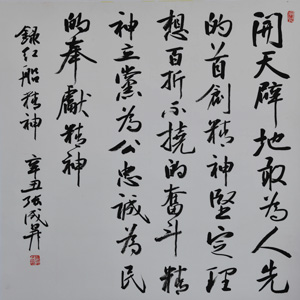 開天辟地敢為人先
的首創精神堅定理
想百折不撓的奮斗精
神立黨為公忠誠為民
的奉獻精神
錄紅船精神 辛丑 張成昇